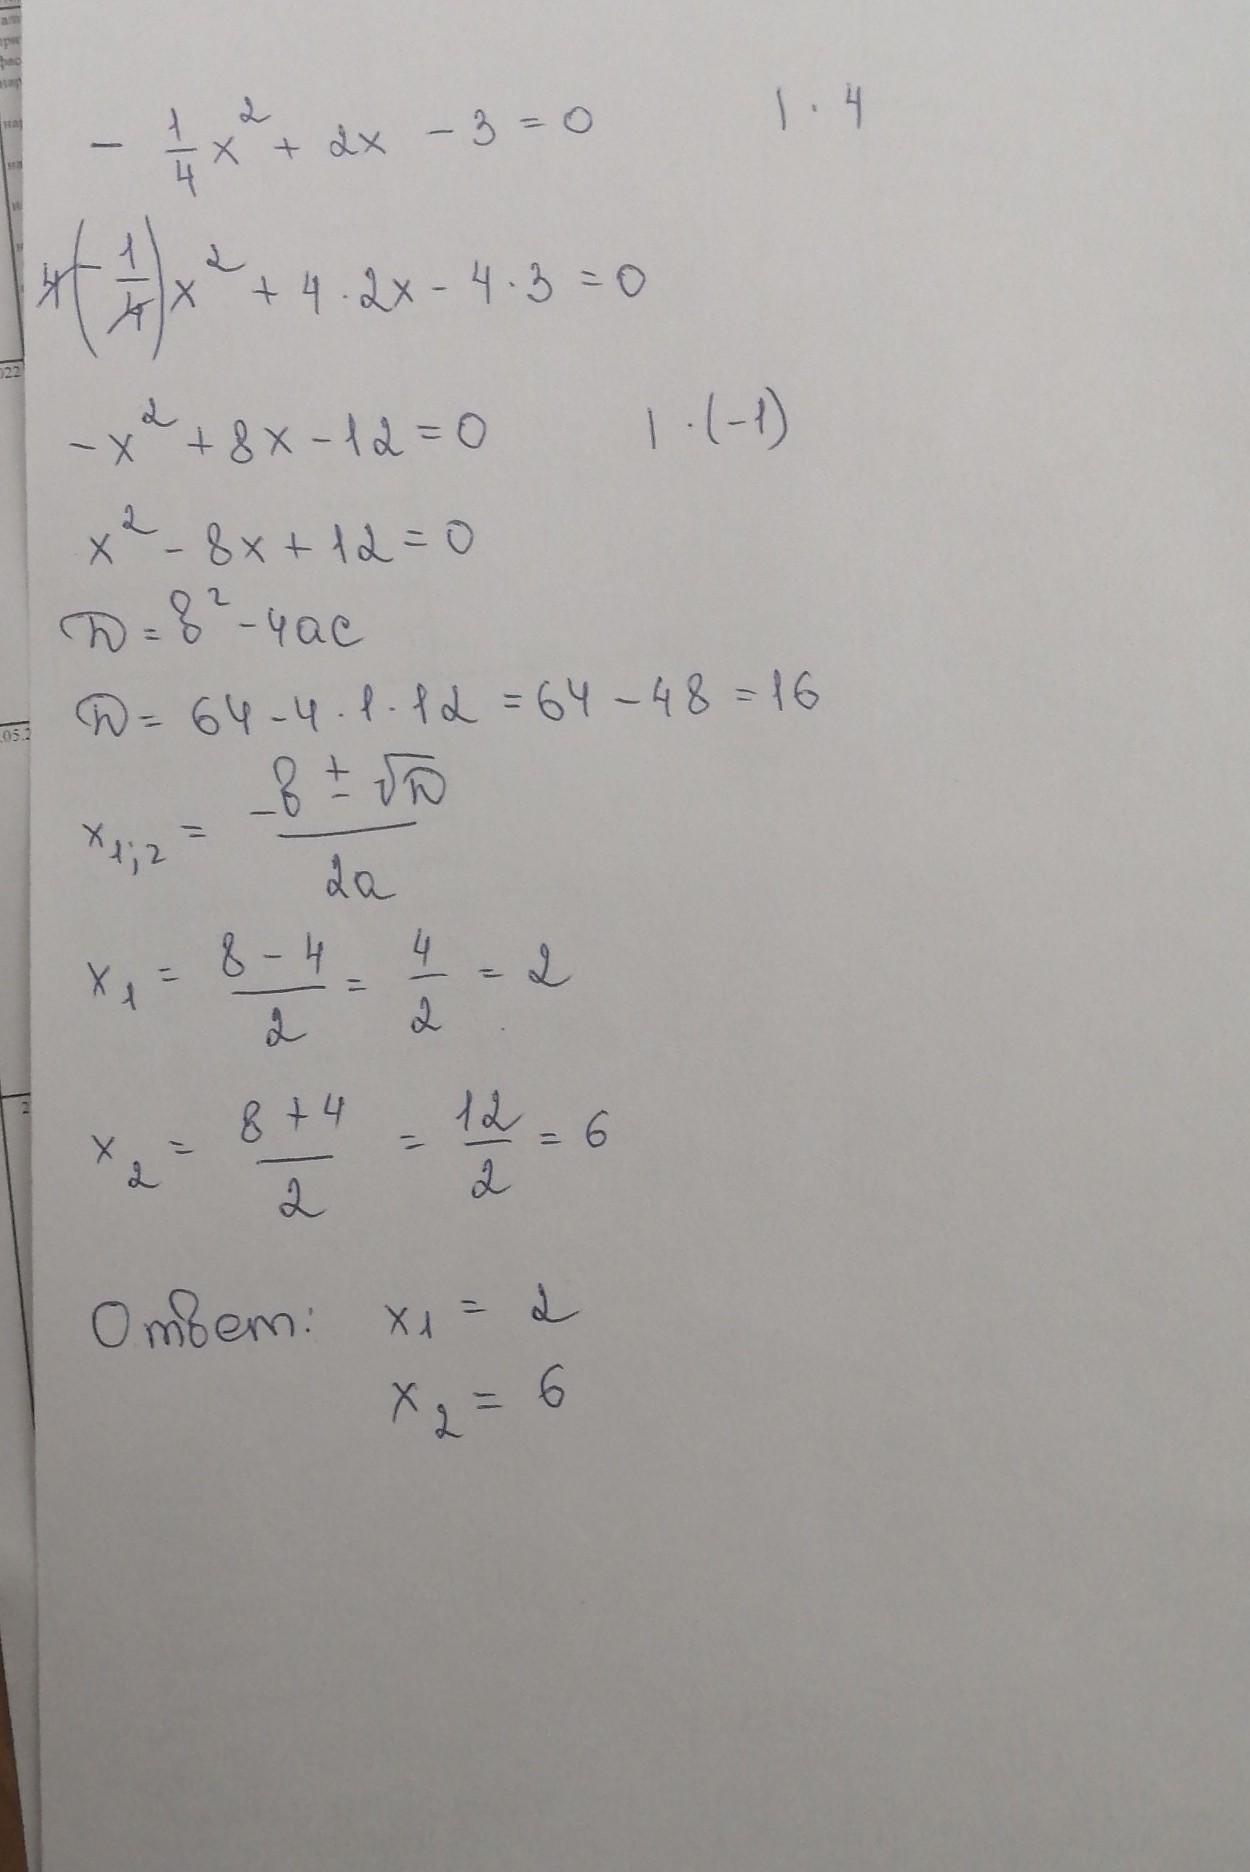 - 1/4 x² + 2x - 3 = 0 | · 4
4(- 1/4)x² + 4 · 2x - 4 · 3 = 0
-x² + 8x - 12 = 0 | · (-1)
x² - 8x + 12 = 0
D = b² - 4ac
D = 64 - 4 · 1 · 12 = 64 - 48 = 16
x₁;₂ = (-b ± √D)/2a
x₁ = (8 - 4)/2 = 4/2 = 2
x₂ = (8 + 4)/2 = 12/2 = 6
Ответ: x₁ = 2
x₂ = 6
022
.05.2
2